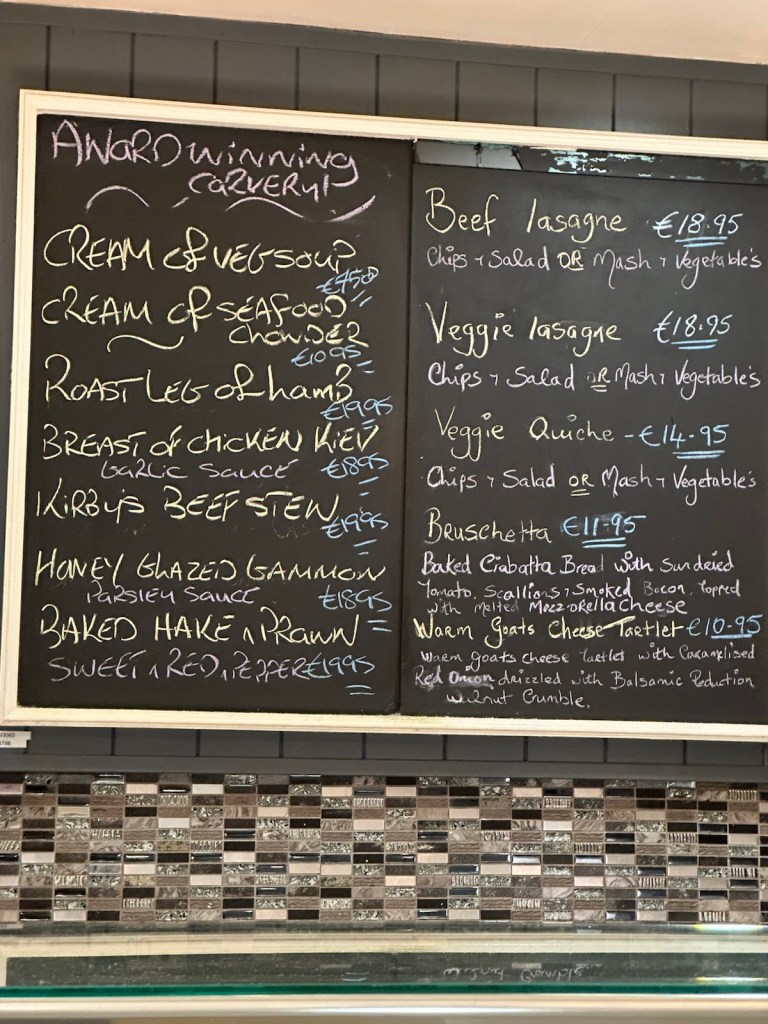 AWARD WINNING
CARVERY!
CREAM of VEG SOUP
€7.50
CREAM of SEAFOOD
CHOWDER
€10.95
ROAST LEG of Lamb
€19.95
BREAST of CHICKEN KIEV
GARLIC SAUCE €18.95
KIRBYS BEEF STEW
€19.95
HONEY GLAZED GAMMON
PARSLEY SAUCE €18.95
BAKED HAKE n PRAWN
SWEET n RED n PEPPER €19.95
Beef lasagne €18.95
Chips + Salad OR Mash + Vegetable's
Veggie lasagne €18.95
Chips + Salad OR Mash + Vegetable's
Veggie Quiche - €14.95
Chips + Salad OR Mash + Vegetable's
Bruschetta €11.95
Baked Ciabatta Bread with Sundried
Tomato, Scallions + Smoked Bacon, topped
with melted Mozzorella Cheese
Warm Goats Cheese Tartlet - €10.95
Warm goats cheese tartlet with Caramelised
Red Onion drizzled with Balsamic Reduction
walnut Crumble.